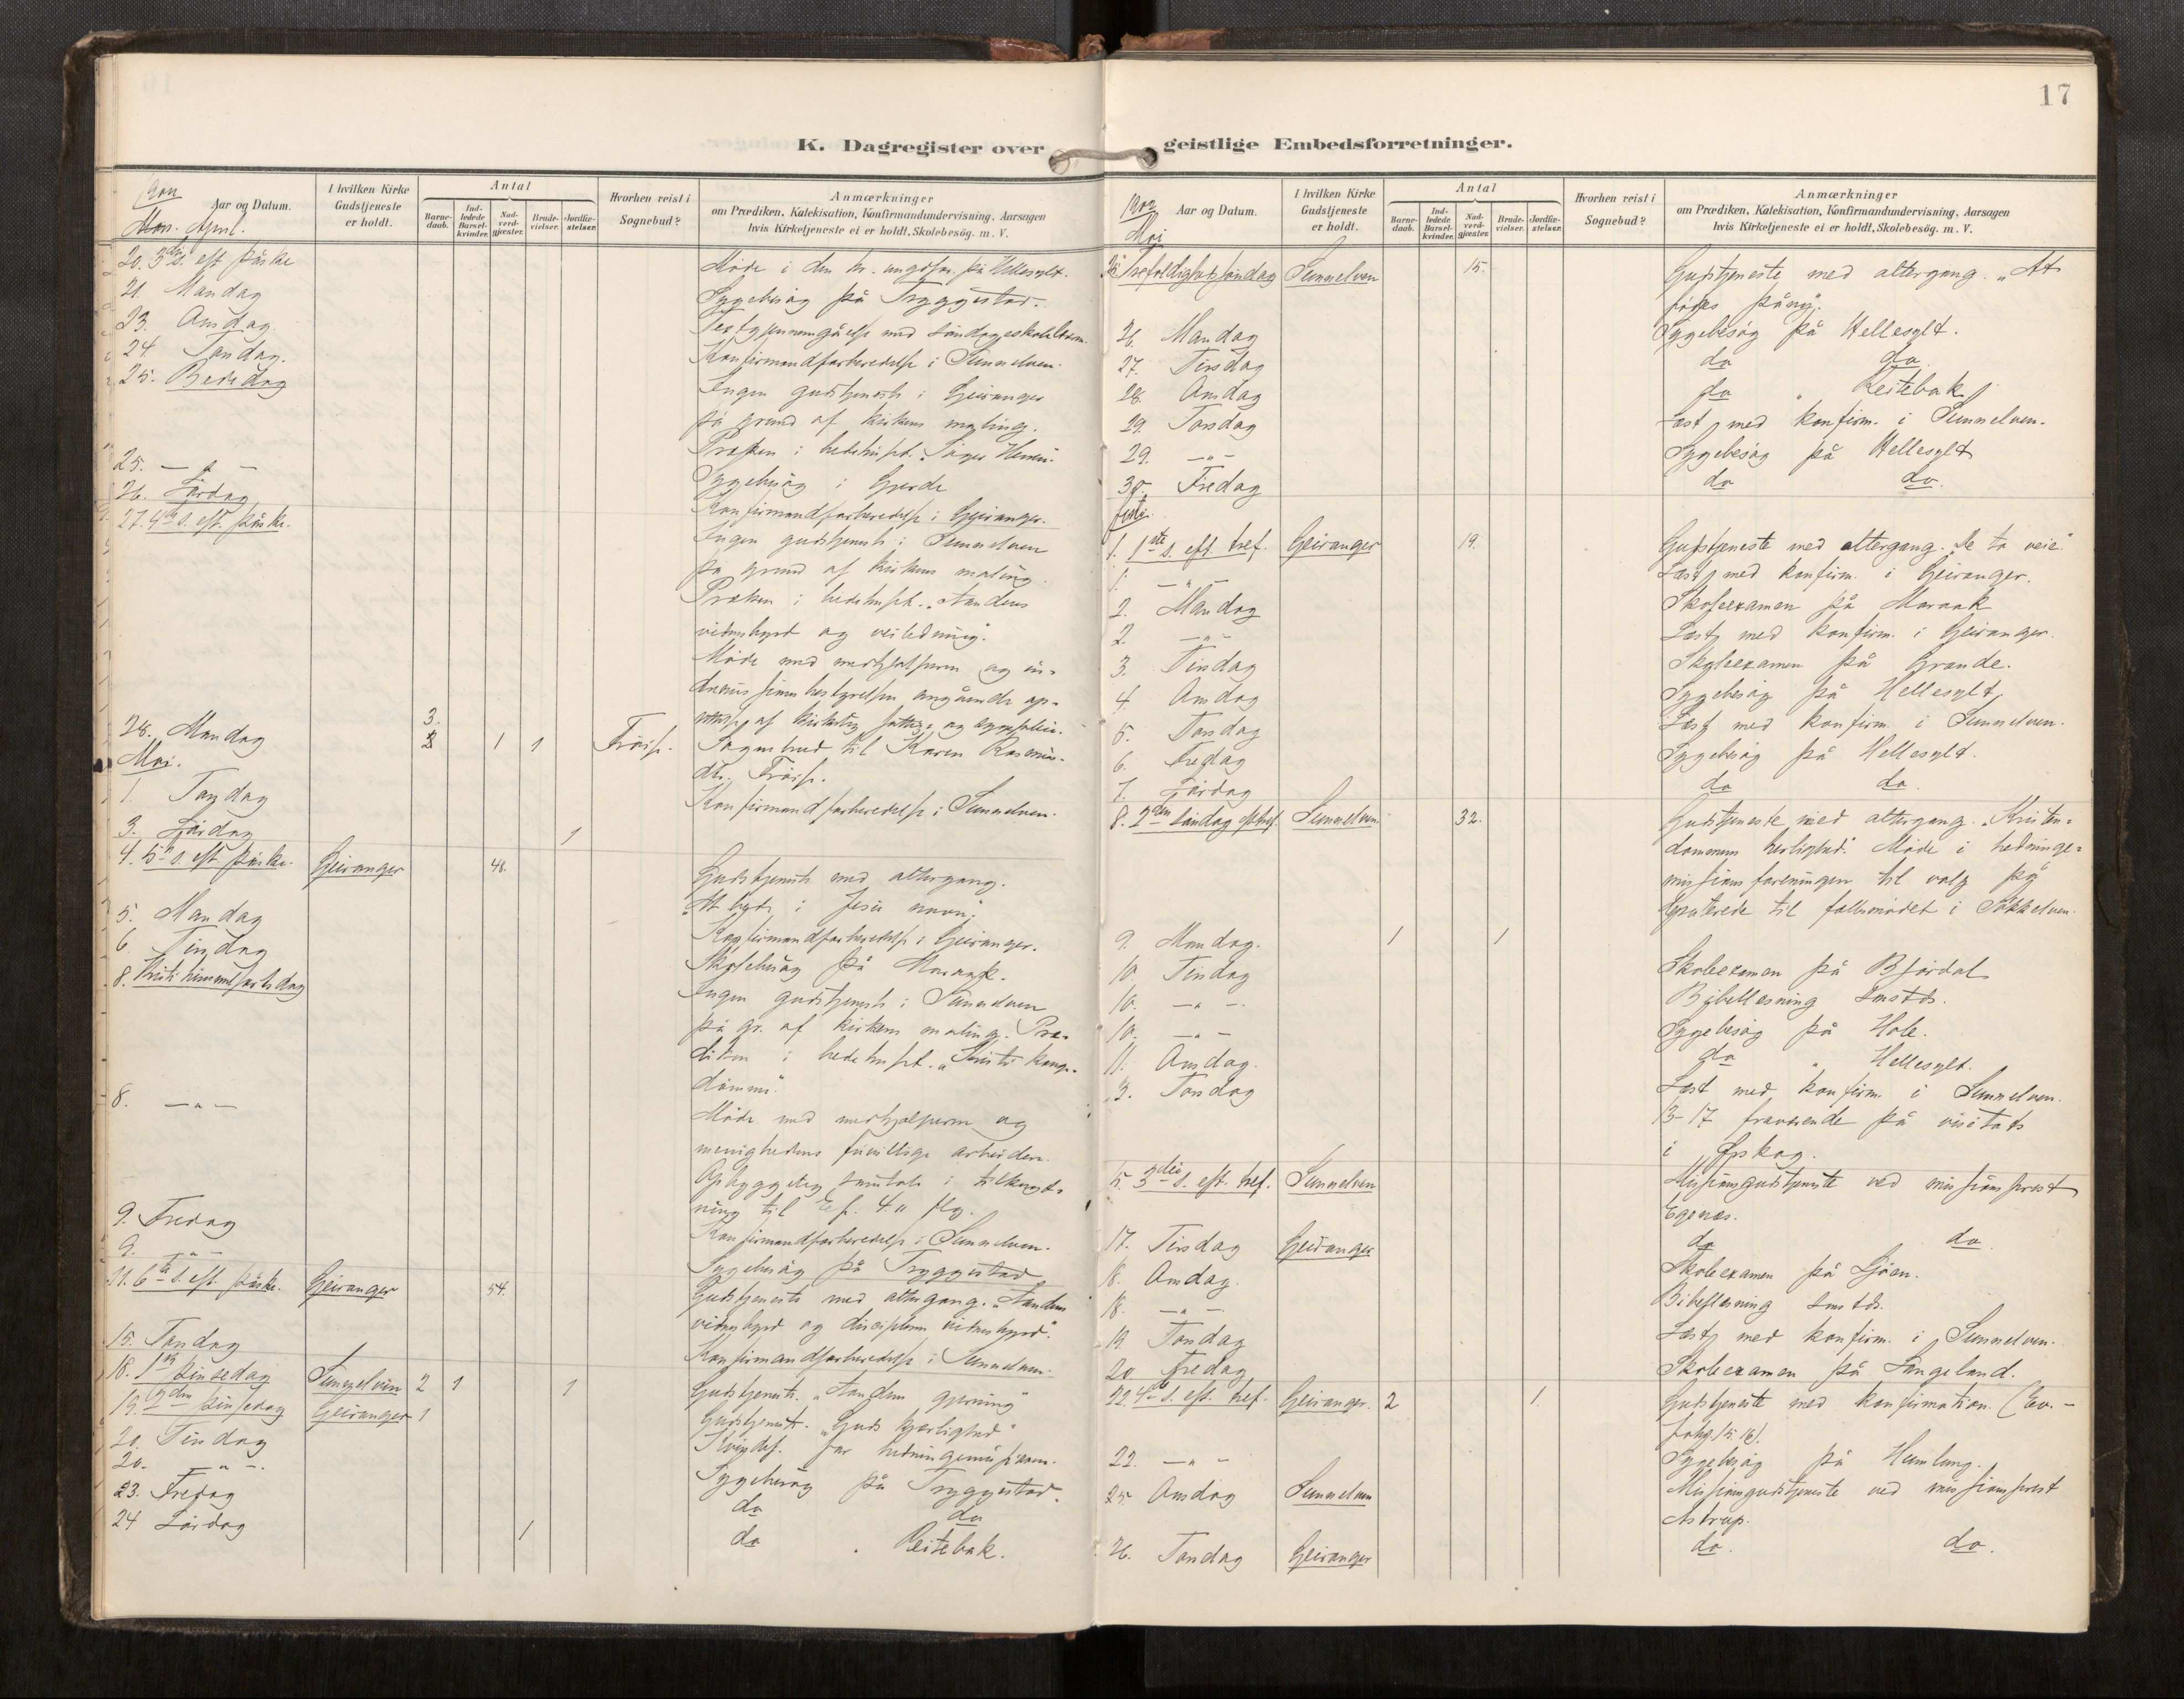 17
K. Dagregister over
geistlige Embedsforretninger.
Aar og Datum.
I hvilken Kirke Gudstjeneste er holdt.
Antal
Barne-daab.
Ind-ledede Barsel-kvinder.
Nad-verd-gjæster.
Brude-vielser.
Jordfæ-stelser.
Hvorhen reist i Sognebud?
Anmærkninger
om Prædiken, Katekisation, Konfirmandundervisning, Aarsagen
hvis Kirketjeneste ei er holdt, Skolebesög. m. V.
April.
20. 3die s. eft påske Möde i den kr. ungdfm. på Hellesylt.
21. Mandag Sygebesög på Tryggestad.
23. Onsdag Textgjennemgåelse med söndagsskolelærn.
24 Torsdag. Konfirmandforberedelse i Sunnelven.
25. Bededag Ingen gudstjeneste i Geiranger
på grund af kirkens maling.
Præken i bedehuset.
25. — " — Sygebesög i Gjerde
26. Lördag Konfirmandforberedelse i Geiranger.
27. 4de s. eft. påske. Ingen gudstjeneste i Sunnelven
på grund af kirkens maling.
Præken i bedehuset. „Aandens
vidnesbyrd og veiledning".
Möde med medhjælperne og
angående op-
28. Mandag 3. 1 1 Fröis. Sognebud til Karen Rasmus-
dtr. Fröis.
Mai.
1. Torsdag Konfirmandforberedelse i Sunnelven.
3. Lördag 1
4. 5te s. eft påske. Geiranger 48. Gudstjeneste med altergang.
„At bede i Jesu navn".
5. Mandag Konfirmandforberedelse i Geiranger.
6. Tirsdag Skolebesög på Maraak.
8. Kristi himmelfartsdag Ingen gudstjeneste i Sunnelven
på gr. af kirkens maling. Præ-
diken i bedehuset. „Kristi konge-
dömme".
8. — " — Möde med medhjælperne og
menighedens frivillige arbeidere.
Opbyggelig samtale i tilknyt-
ning til Ef. 4. 11 flg.
9. Fredag Konfirmandforberedelse i Sunnelven.
9. — " — Sygebesög på Tryggestad
11. 6te s. eft. påske. Geiranger 54. Gudstjeneste med altergang. „Aandens
vidnesbyrd og disciplenes vidnesbyrd".
15. Torsdag Konfirmandforberedelse i Sunnelven.
18. 1ste pinsedag Sunnelven 2 1 1 Gudstjeneste. „Aandens gjerning"
19. 2den pinsedag Geiranger 1 Gudstjeneste. „Guds kjærlighed"
20. Tirsdag Kvindef. for hedningemissionen.
20. — " — Sygebesög på Tryggestad.
23. Fredag do do
24 Lördag 1 do " Reitebak.
Aar og Datum.
I hvilken Kirke Gudstjeneste er holdt.
Antal
Barne-daab.
Ind-ledede Barsel-kvinder.
Nad-verd-gjæster.
Brude-vielser.
Jordfæ-stelser.
Hvorhen reist i Sognebud?
Anmærkninger
om Prædiken, Katekisation, Konfirmandundervisning, Aarsagen
hvis Kirketjeneste ei er holdt, Skolebesög. m. V.
1902
Mai
25 Trefoldighedssöndag Sunnelven 15. Gudstjeneste med altergang. „At
födes påny".
26. Mandag Sygebesög på Hellesylt.
27. Tirsdag do do
28. Onsdag do " Reitebak
29. Torsdag Læst med konfirm. i Sunnelven.
29. — " — Sygebesög på Hellesylt
30. Fredag do do.
Juni.
1. 1ste s. eft. tref. Geiranger 19. Gudstjeneste med altergang. „De to veie."
1. — " — Læst med konfirm. i Geiranger.
2. Mandag Skoleexamen på Maraak
2. — " — Læst med konfirm. i Geiranger.
3. Tirsdag Skoleexamen på Grande.
4. Onsdag Sygebesög på Hellesylt,
5. Torsdag Læst med konfirm. i Sunnelven.
6. Fredag Sygebesög på Hellesylt.
7. Lördag do do.
8. 2den söndag eft tref. Sunnelven 32. Gudstjeneste med altergang. „Kristen-
dommens herlighed." Möde i hedninge-
missionsforeningen til valg på
deputerede til fællesmödet i Sökkelven.
9. Mandag. 1 1
10 Tirsdag Skoleexamen på Björdal
10. — " — Bibellæsning smstds.
10. — " — Sygebesög på Hole.
11. Onsdag. do " Hellesylt.
Torsdag Læst med konfirm. i Sunnelven.
13-17 fraværende på visitats
i Ørskog.
15. 3die s. eft. tref. Sunnelven Missionsgudstjeneste ved missionsprest
Egenæs.
17. Tirsdag Geiranger do do
18. Onsdag. Skoleexamen på Ljöen.
18. — " — Bibellæsning smstds.
19 Torsdag Læst med konfirm. i Sunnelven.
20 Fredag Skoleexamen på Langeland.
22 4de s. eft. tref. Geiranger. 2 1. Gudstjeneste med konfirmation. (Ev.
Joh. 15. 16).
22. — " — Sygebesög på Homlung.
25. Onsdag Sunnelven Missionsgudstjeneste ved missionsprest
Astrup.
26. Torsdag Geiranger do. do.